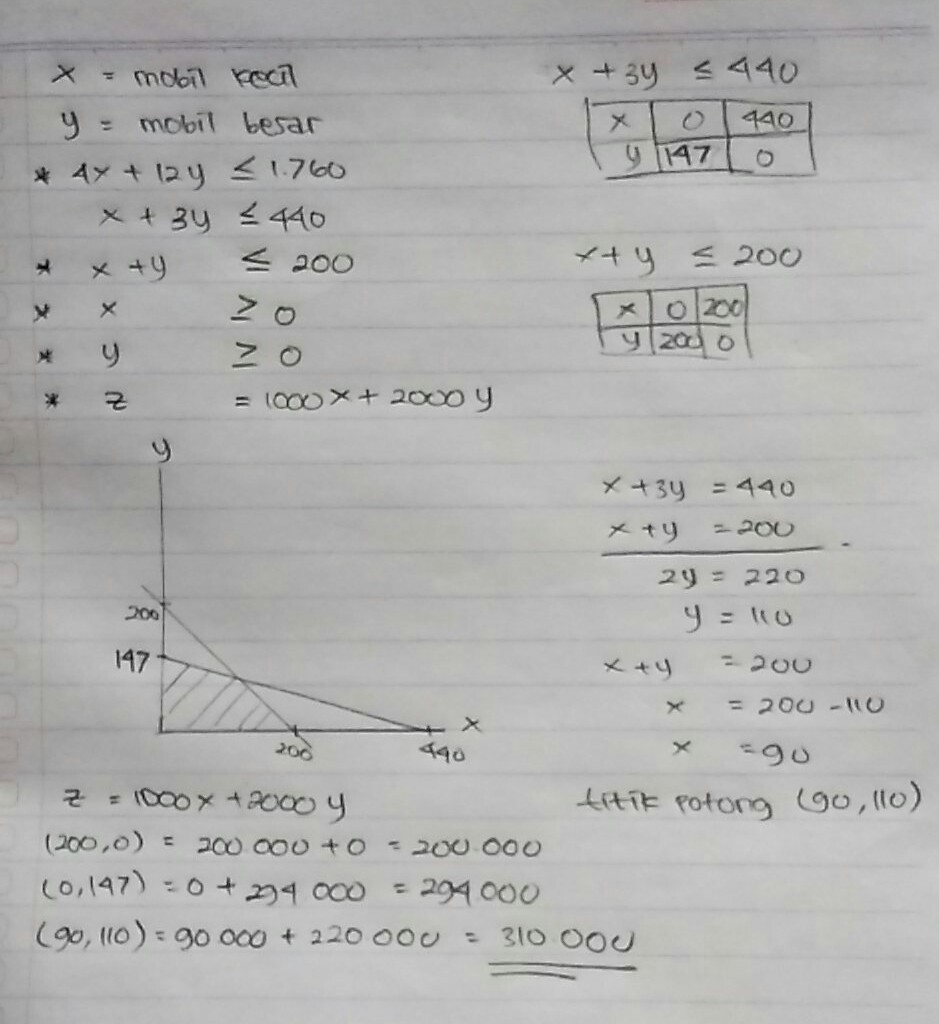 x = mobil kecil
y = mobil besar
* 4x + 12y ≤ 1.760
x + 3y ≤ 440
* x + y ≤ 200
* x ≥ 0
* y ≥ 0
* z = 1000x + 2000y
x + 3y ≤ 440
x 0 440
y 147 0
x + y ≤ 200
x 0 200
y 200 0
y
200
147
200
440
x
x + 3y = 440
x + y = 200 -
2y = 220
y = 110
x + y = 200
x = 200 - 110
x = 90
titik potong (90, 110)
z = 1000x + 2000y
(200,0) = 200 000 + 0 = 200.000
(0,147) = 0 + 294 000 = 294 000
(90, 110) = 90 000 + 220 000 = 310 000